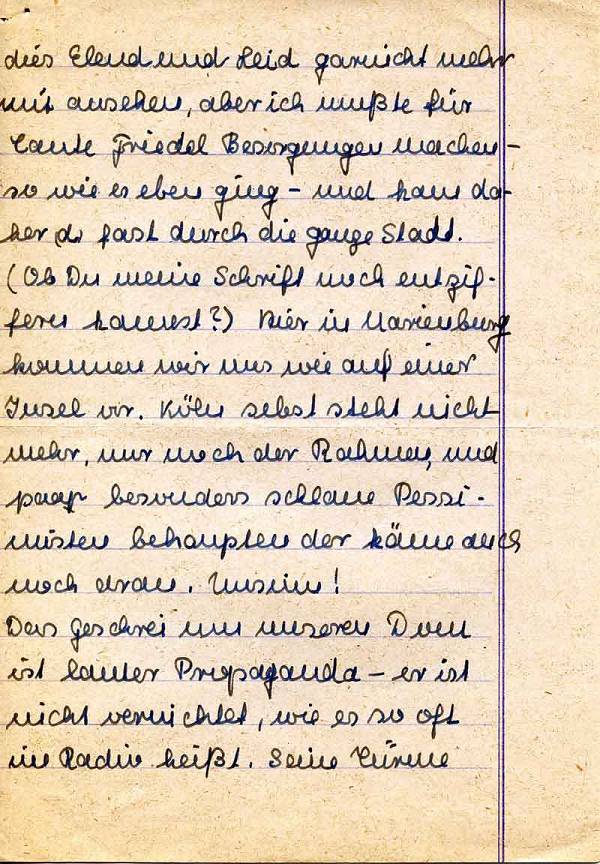 dies Elend und Leid garnicht mehr
mit ansehen, aber ich mußte für
Tante Friedel Besorgungen machen –
so wie es eben ging – und kam da-
her fast durch die ganze Stadt.
(Ob Du meine Schrift noch entzif-
fern kannst?) Hier in Marienburg
kommen wir uns wie auf einer
Insel vor. Köln selbst steht nicht
mehr, nur noch der Rahmen, und
paar besonders schlaue Pessi-
misten behaupten der käme auch
noch dran. Unsinn!
Das Geschrei um unseren Dom
ist lauter Propaganda – er ist
nicht vernichtet, wie es so oft
im Radio heißt. Seine Türme